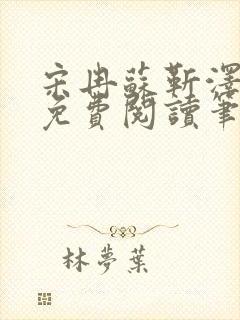 宋冉蘇靳澤
免費閱讀筆
林夢葉